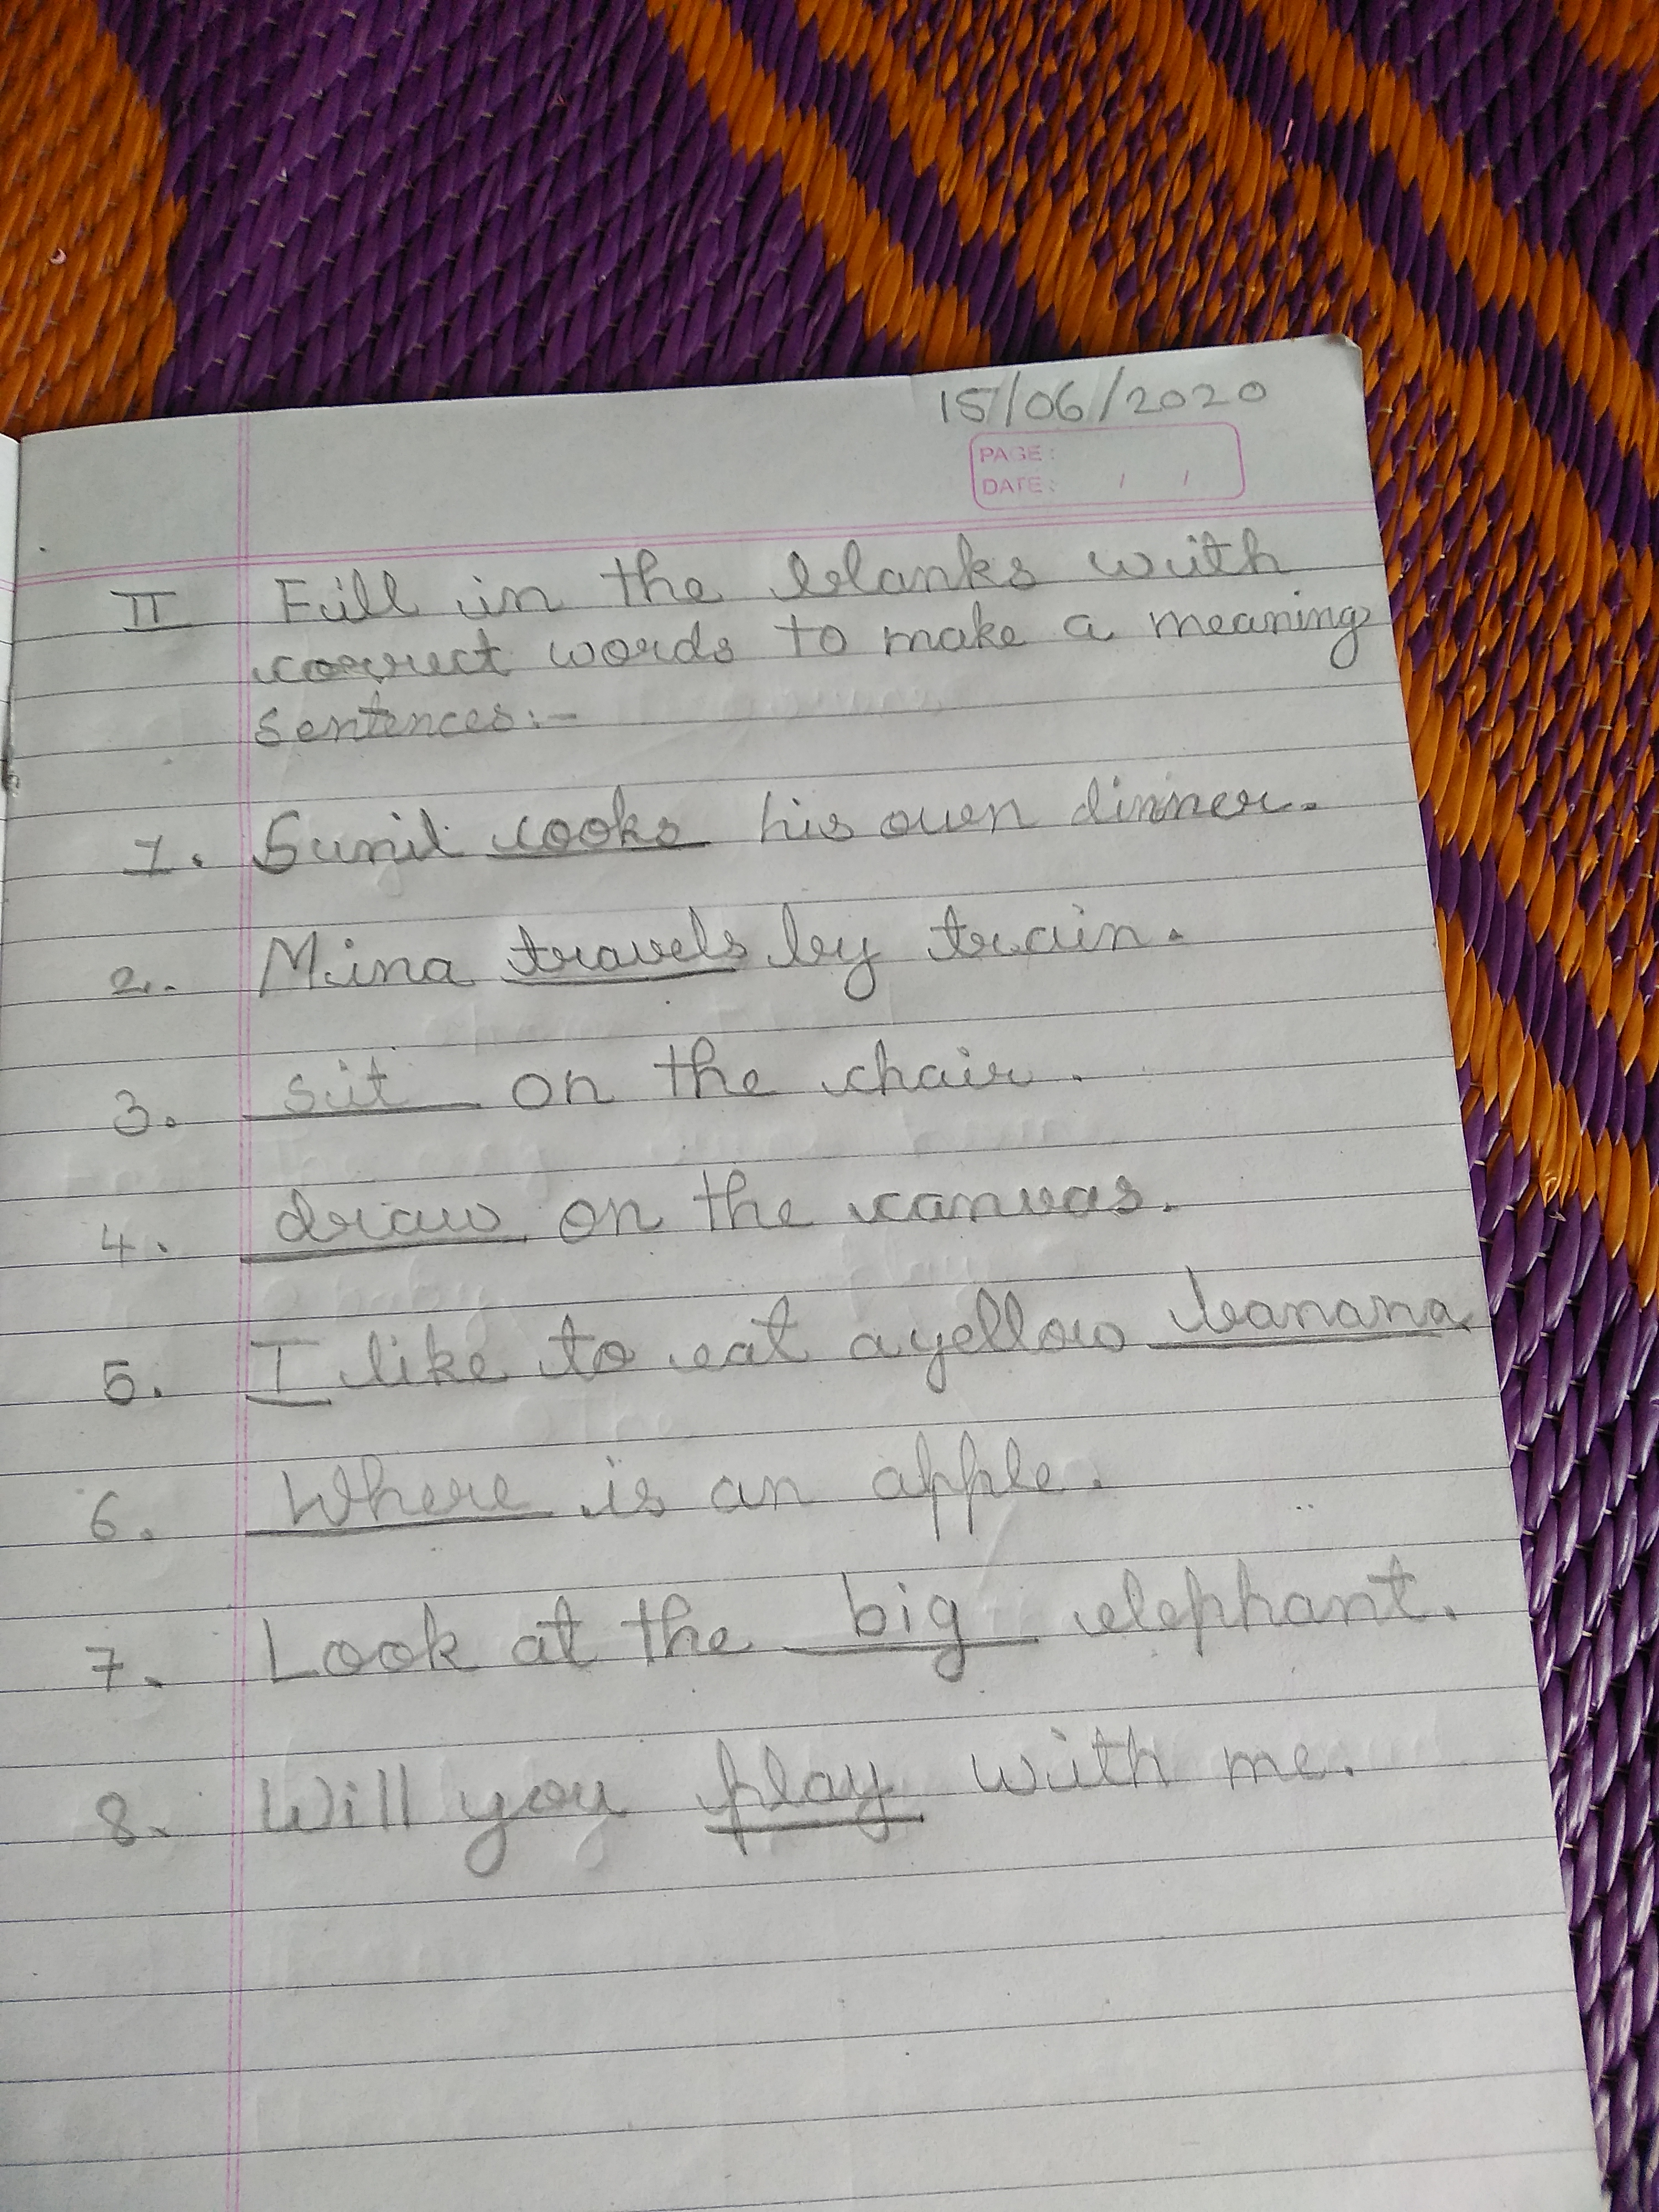 15/06/2020
PAGE:
DATE: / /
II Fill in the blanks with
correct words to make a meaning
sentences:-
1. Sunil cooks his own dinner.
2. Mina travels by train.
3. sit on the chair.
4. draw on the canvas.
5. I like to eat a yellow banana.
6. Where is an apple.
7. Look at the big elephant.
8. Will you play with me.